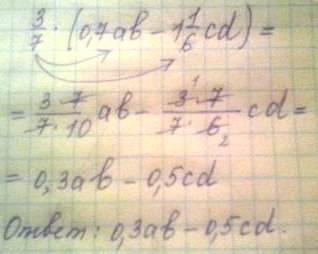 3/7 · (0,7ab − 1 1/6 cd) =
= (3 · 7)/(7 · 10) ab − (3 · 7)/(7 · 6) cd =
= 0,3ab − 0,5cd
Ответ: 0,3ab − 0,5cd.